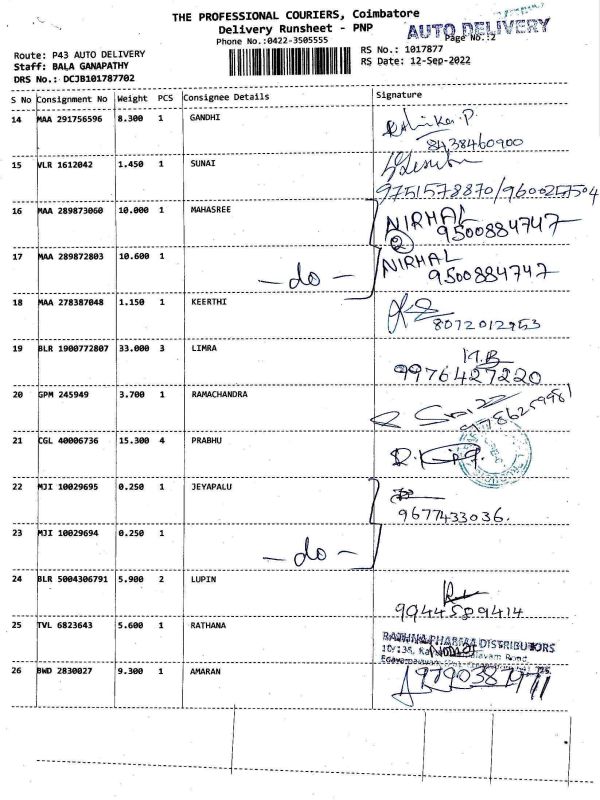 THE PROFESSIONAL COURIERS, Coimbatore
Delivery Runsheet - PNP
AUTO DELIVERY
Phone No.:0422-3505555
Page No.:2
Route: P43 AUTO DELIVERY
RS No.: 1017877
Staff: BALA GANAPATHY
RS Date: 12-Sep-2022
DRS No.: DCJB101787702
S No Consignment No Weight PCS Consignee Details Signature
14 MAA 291756596 8.300 1 GANDHI
8438460900
15 VLR 1612042 1.450 1 SUNAI
9751578870/9600257504
16 MAA 289873060 10.000 1 MAHASREE NIRMAL
② 9500884747
17 MAA 289872803 10.600 1 NIRMAL
-do- 9500884747
18 MAA 278387048 1.150 1 KEERTHI
8072012953
19 BLR 1900772807 33.000 3 LIMRA M.B
9976427220
20 GPM 245949 3.700 1 RAMACHANDRA
21 CGL 40006736 15.300 4 PRABHU
22 MJI 10029695 0.250 1 JEYAPALU
9677433036.
23 MJI 10029694 0.250 1
-do-
24 BLR 5004306791 5.900 2 LUPIN
9944589414
25 TVL 6823643 5.600 1 RATHANA
RATHNA PHARMA DISTRIBUTORS
26 BWD 2830027 9.300 1 AMARAN